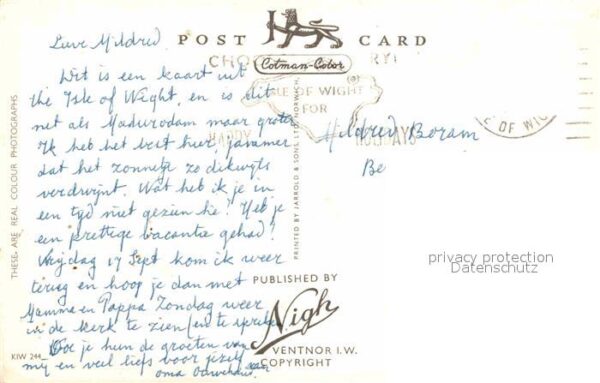 Lieve Mildred
POST CARD
Cotman-Color
Dit is een kaart uit
the Isle of Wight, en is dit
net als Madurodam maar groter
Ik heb het best hier, jammer
dat het zonnetje zo dikwijls
verdwijnt. Wat heb ik je in
een tijd niet gezien hè? Heb je
een prettige vacantie gehad?
Vrijdag 17 Sept kom ik weer
terug en hoop je dan met
Mamma en Pappa Zondag weer
in de kerk te zien (en te spreken
Doe je hun de groeten van
mij en veel liefs voor jezelf
van
oma
ISLE OF WIGHT
FOR
HAPPY HOLIDAYS
OF WIG
Mildred Boram
Be
THESE ARE REAL COLOUR PHOTOGRAPHS
PRINTED BY JARROLD & SONS LTD NORWICH
privacy protection
Datenschutz
PUBLISHED BY
Nigh
VENTNOR I.W.
COPYRIGHT
KIW 244